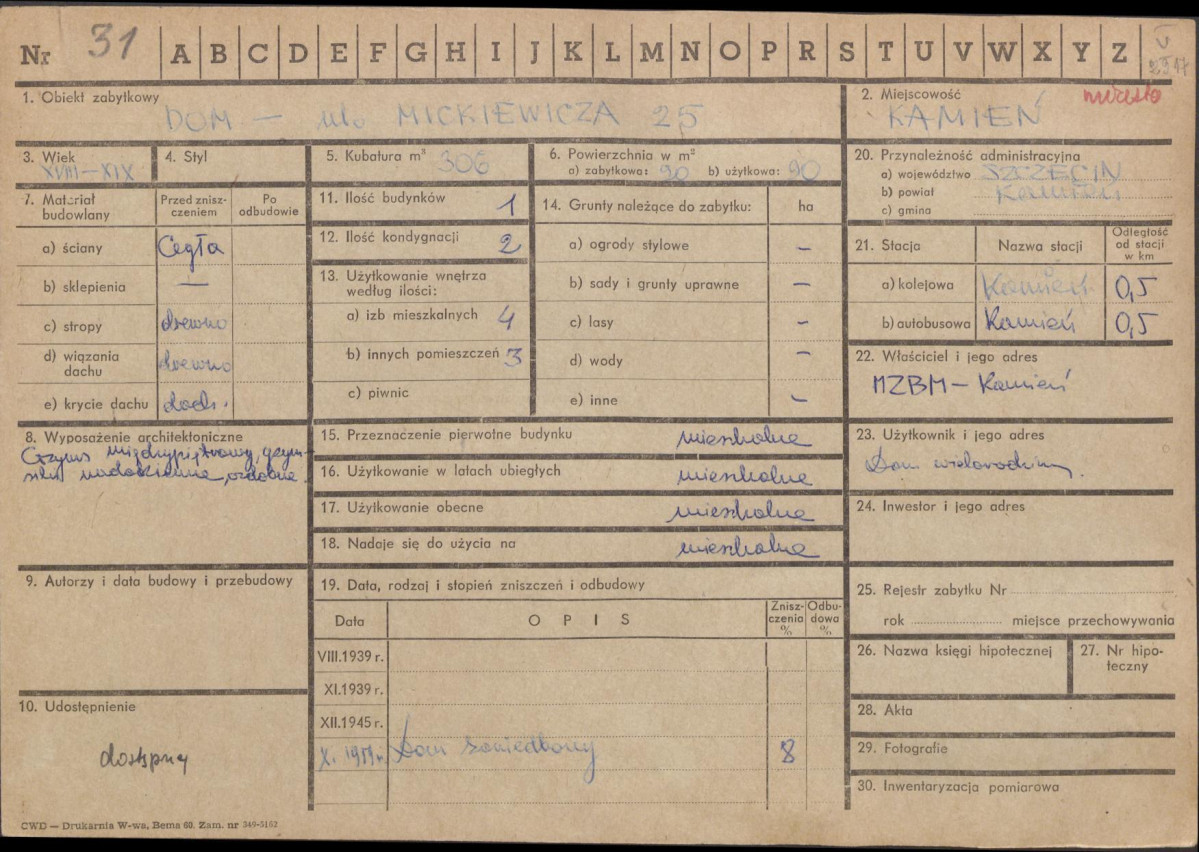 Nr 31 A B C D E F G H I J K L M N O P R S T U V W X Y Z
1. Obiekt zabytkowy
DOM — ul. MICKIEWICZA 25
2. Miejscowość miasto
KAMIEŃ
3. Wiek
XVIII—XIX
4. Styl
5. Kubatura m³ 306
6. Powierzchnia w m²
a) zabytkowa: 90 b) użytkowa: 90
20. Przynależność administracyjna
a) województwo SZCZECIN
b) powiat Kamień
c) gmina
7. Materiał budowlany
Przed znisz-czeniem
Po odbudowie
a) ściany Cegła
b) sklepienia —
c) stropy drewno
d) wiązania dachu drewno
e) krycie dachu dach.
11. Ilość budynków 1
12. Ilość kondygnacji 2
13. Użytkowanie wnętrza
według ilości:
a) izb mieszkalnych 4
b) innych pomieszczeń 3
c) piwnic
14. Grunty należące do zabytku: ha
a) ogrody stylowe —
b) sady i grunty uprawne —
c) lasy —
d) wody —
e) inne —
21. Stacja Nazwa stacji
Odległość
od stacji
w km
a) kolejowa Kamień 0,5
b) autobusowa Kamień 0,5
22. Właściciel i jego adres
MZBM — Kamień
8. Wyposażenie architektoniczne
Gzyms międzypiętrowy, gzym-
siki nadokienne, ozdobne.
15. Przeznaczenie pierwotne budynku mieszkalne
16. Użytkowanie w latach ubiegłych mieszkalne
17. Użytkowanie obecne mieszkalne
18. Nadaje się do użycia na mieszkalne
23. Użytkownik i jego adres
Dom wielorodzinny.
24. Inwestor i jego adres
9. Autorzy i data budowy i przebudowy
19. Data, rodzaj i stopień zniszczeń i odbudowy
Data OPIS
Znisz-
czenia
%
Odbu-
dowa
%
VIII.1939 r.
XI.1939 r.
XII.1945 r.
X. 1959 r. Dom zaniedbany 8
25. Rejestr zabytku Nr
rok miejsce przechowywania
26. Nazwa księgi hipotecznej
27. Nr hipo-
teczny
28. Akta
29. Fotografie
30. Inwentaryzacja pomiarowa
10. Udostępnienie
dostępny
CWD — Drukarnia W-wa, Bema 60. Zam. nr 349-5162